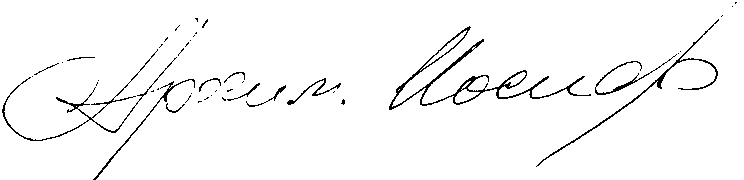 Архим. Иосиф